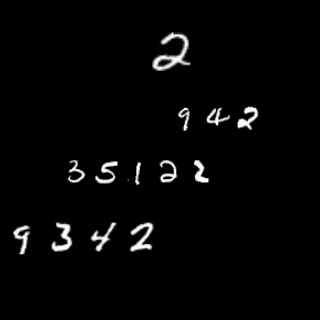 2
942
35122
9342